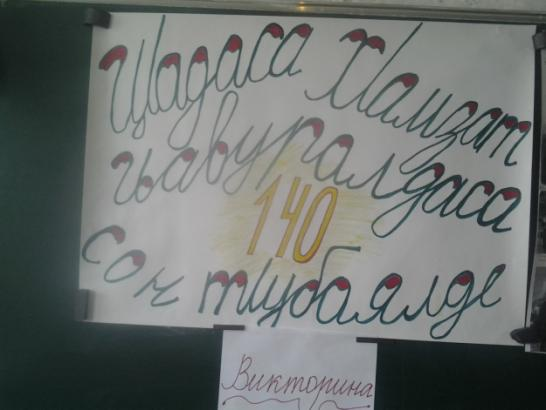 ЦӀадаса ХӀамзат
гьавуралдаса
140
сон тӀубаялде
Викторина